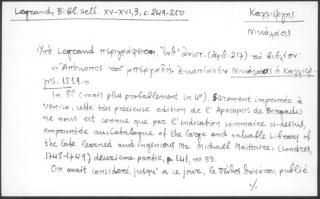 Legrand, B: Bl. Hell XV-XVI, 3, σ. 249-250
Καλλιέργης
Νικόλαος
Ὑπὸ Legrand περιγράφεται, (ἀριθ. 217) τὸ βιβλίον:
«Ἀπόκοπος τοῦ μπεργαδῆ Νικόλαος ὁ Καλλιέρ
γης. 1519.»
In 8º (mais plus probablement in 4º). Sûrement imprimée à
Venise, cette très précieuse édition de l'Apocopos de Bergadis
ne nous est connue que par l'indication sommaire ci-dessus,
empruntée au Catalogue of the large and valuable Library of
the late learned and ingenious Mr Michael Maittaire (Londres,
1748-1749) deuxième partie, p. 141, no 83.
On avait considéré, jusqu'à ce jour, le publié
%